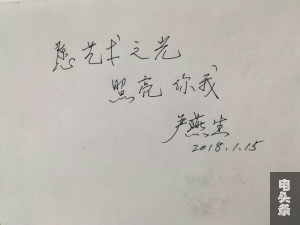 愿艺术之光
照亮你我
尹燕生
2018.1.15
电头条